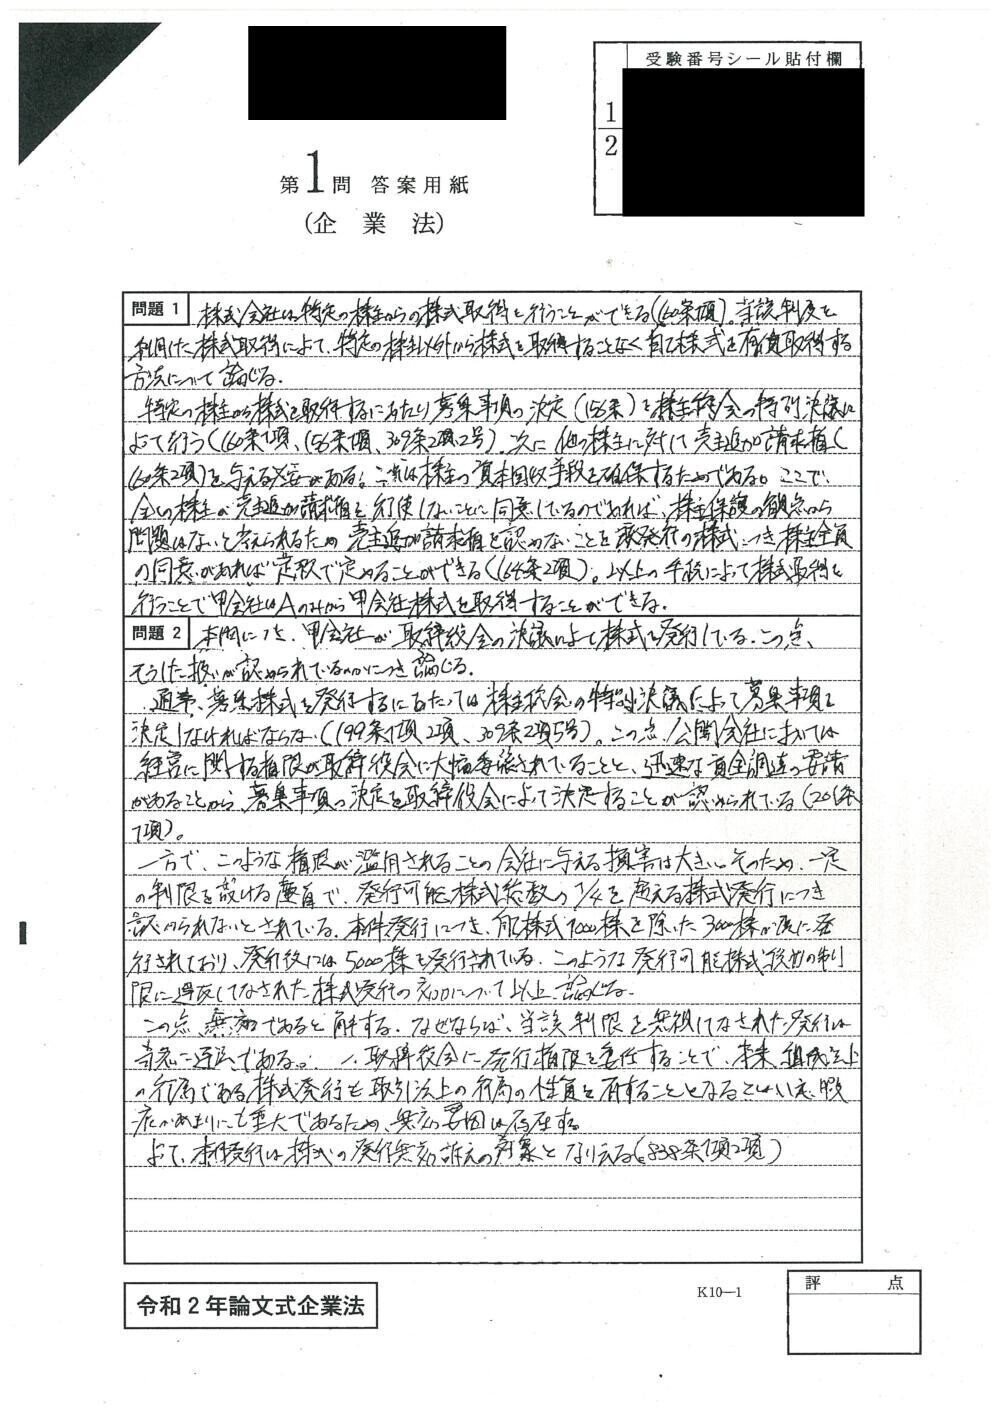 受験番号シール貼付欄
1
2
第1問 答案用紙
(企業法)
問題1 株式会社は特定の株主からの株式取得を行うことができる(160条1項)。当該制度を
利用した株式取得によって、特定の株主以外から株式を取得することなく自己株式を有償取得する
方法について論じる.
特定の株主から株式を取得するにあたり募集事項の決定(156条)を株主総会の特別決議に
よって行う(160条1項、156条1項、309条2項2号).次に他の株主に対して売主追加請求権(
160条2項)を与える必要がある。これは株主の資本回収手段を確保するためである。ここで、
全ての株主が売主追加請求権を行使しないことに同意しているのであれば、株主保護の観点から
問題はないと考えられるため売主追加請求権を認めないことを既発行の株式につき株主全員
の同意があれば定款で定めることができる(164条2項)。以上の手続によって株式取得を
行うことで甲会社はAのみから甲会社株式を取得することができる.
問題2 本問につき、甲会社が取締役会の決議によって株式を発行している.この点、
そうした扱いが認められているかにつき論じる.
通常、募集株式を発行するにあたっては株主総会の特別決議によって募集事項を
決定しなければならない(199条1項2項、309条2項5号)。この点、公開会社においては
経営に関する権限が取締役会に大幅委譲されていることと、迅速な資金調達の要請
があることから、募集事項の決定を取締役会によって決定することが認められている(201条
1項)。
一方で、このような権限が濫用されることの会社に与える損害は大きい.そのため、一定
の制限を設ける趣旨で、発行可能株式総数の1/4を超える株式発行につき
認められないとされている.本件発行につき、自己株式1000株を除いた3000株が既に発
行されており、発行後には5000株も発行されている.このような発行可能株式総数の制
限に違反してなされた株式発行の効力について以上論じる.
この点、無効であると解する.なぜならば、当該制限を無視してなされた発行は
取締役会に発行権限を委任することで、本来、組織法上
の行為である株式発行も取引法上の行為の性質を有することとなるとはいえ、瑕
疵があまりにも重大であるため、無効要因は存在する
よって、本件発行は株式の発行無効訴えの対象となりえる(838条1項2項)
令和2年論文式企業法
K10―1
評 点